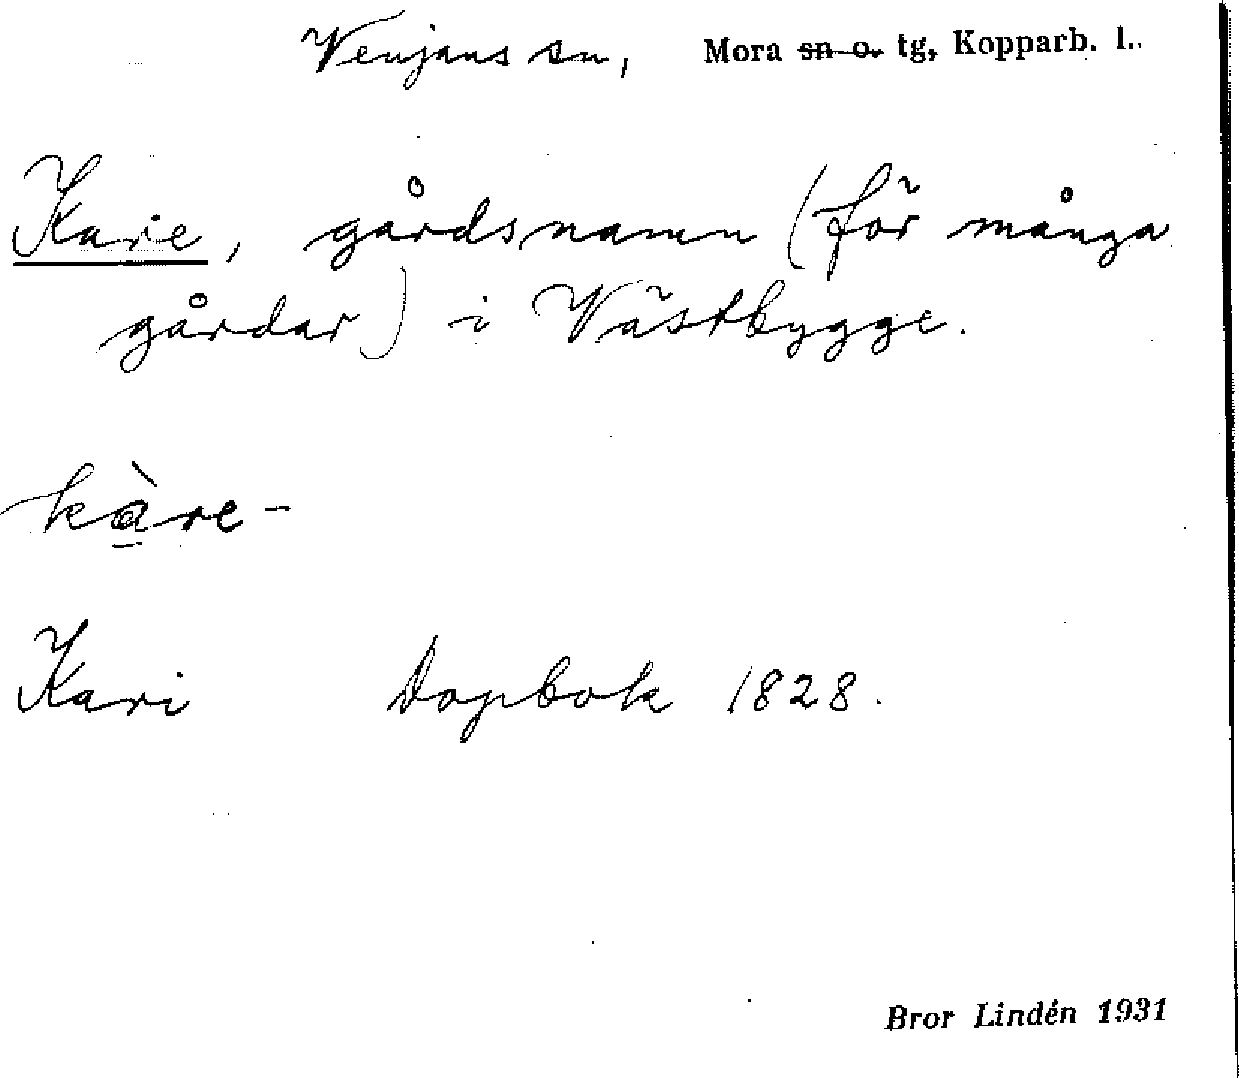 Venjans sn, Mora sn o. tg, Kopparb. l.
Karie, gårdsnamn (för många
gårdar) i Västbygge.
kàre-
Kari Dopbok 1828.
Bror Lindén 1931